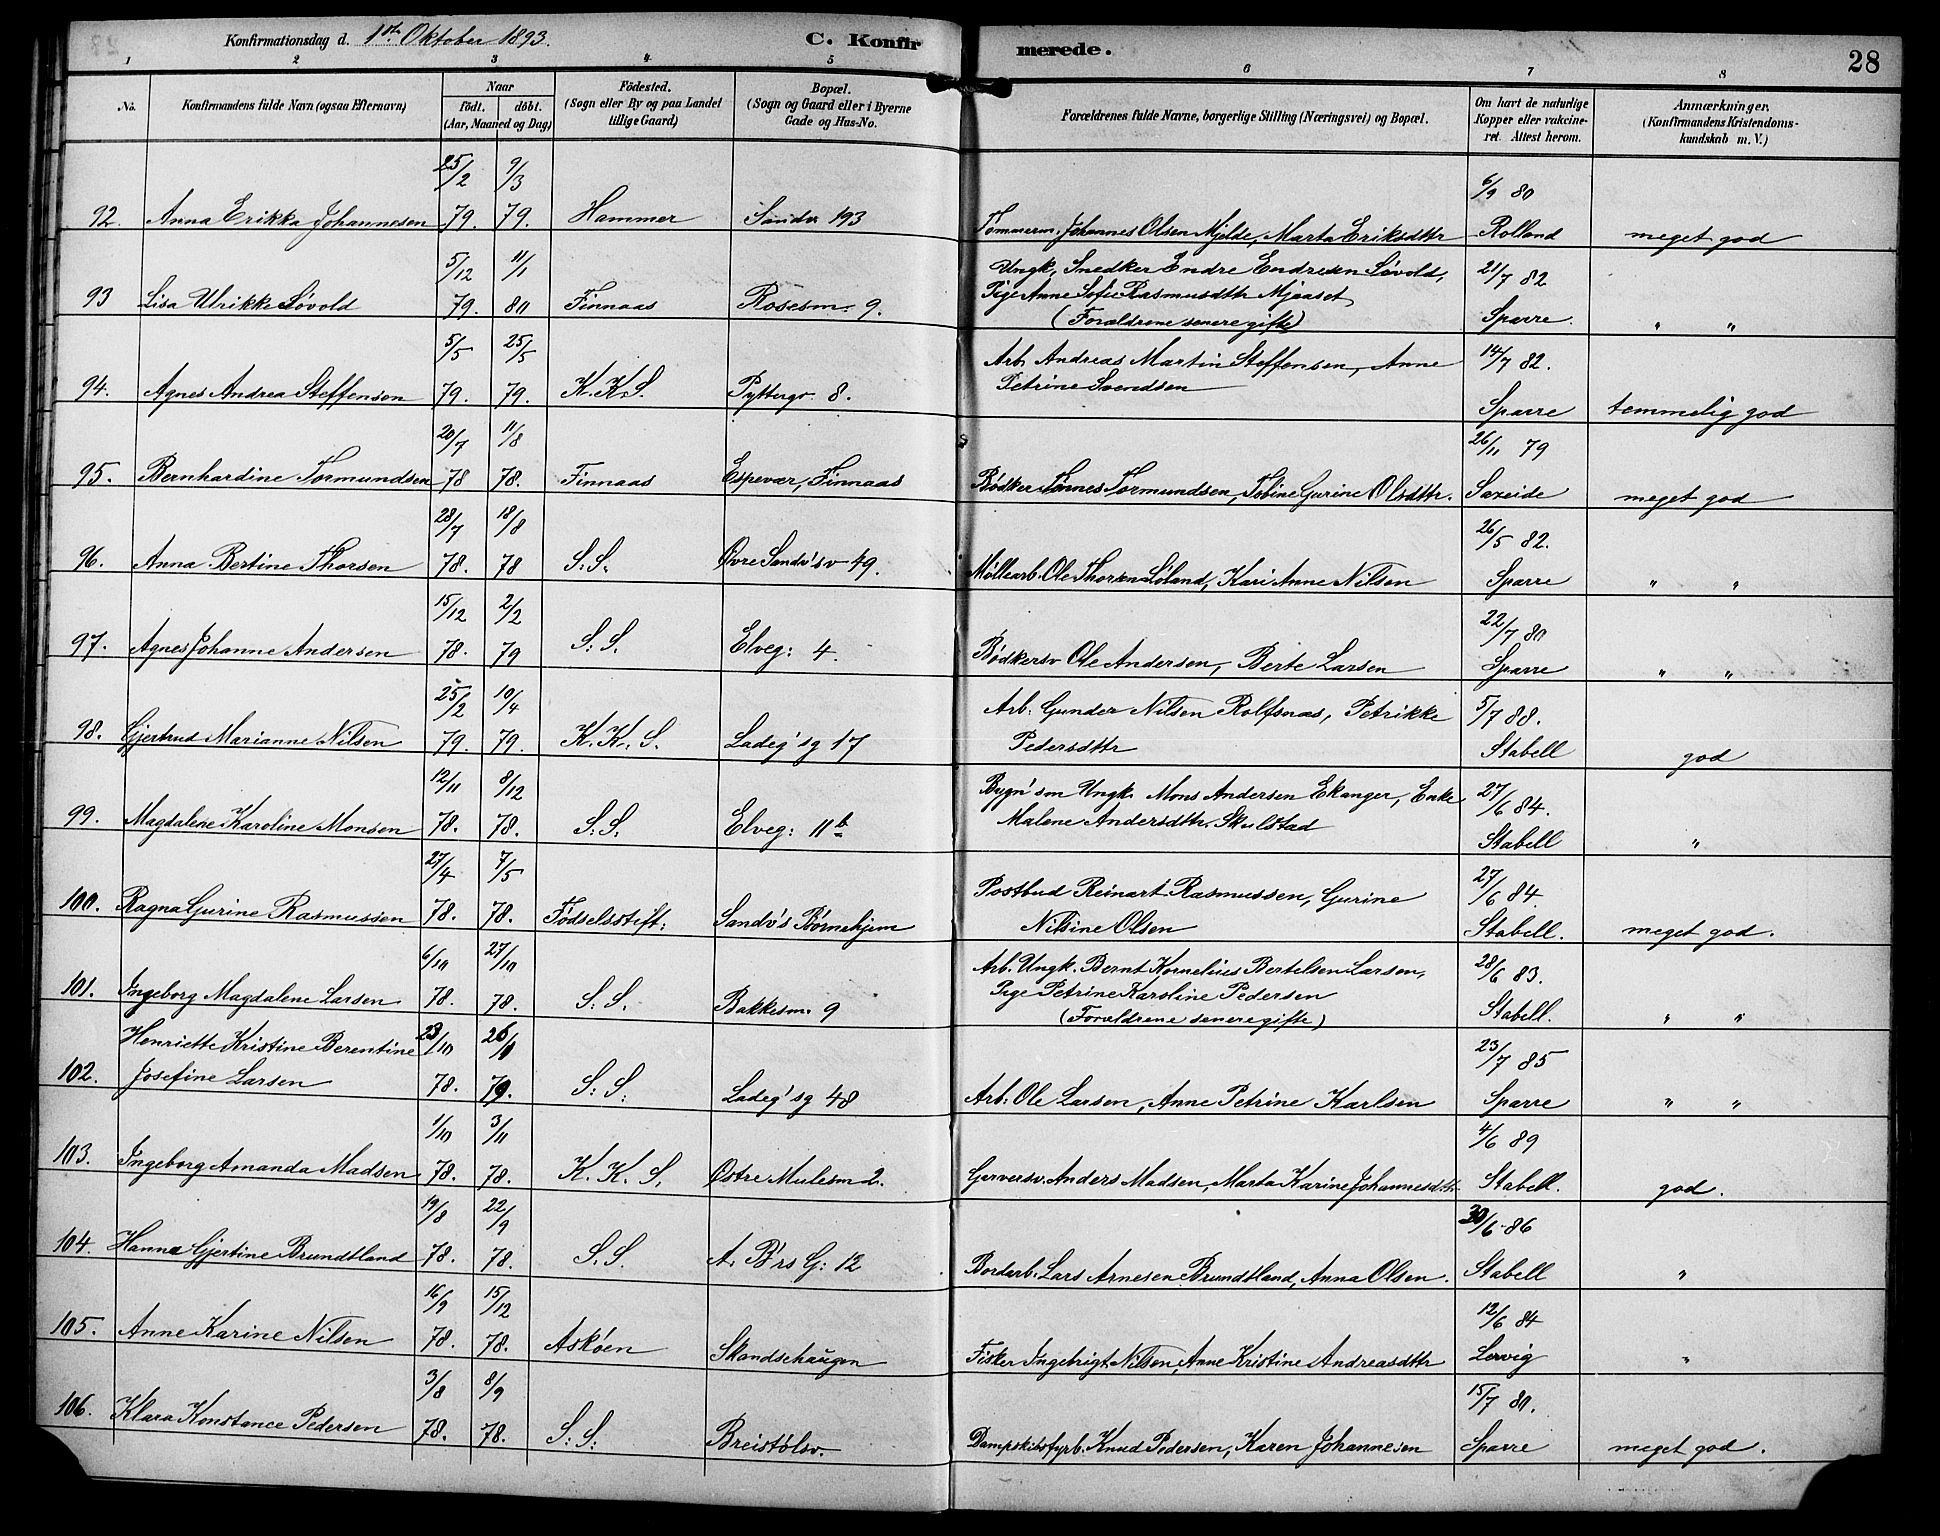 Konfirmationsdag d. 1ste Oktober 1893. C. Konfirmerede. 28
1 2 3 4 5 6 7 8
No. Konfirmandens fulde Navn (ogsaa Efternavn) Naar födt. döbt. (Aar, Maaned og Dag) Födested. (Sogn eller By og paa Landet tillige Gaard) Bopæl. (Sogn og Gaard eller i Byerne Gade og Hus-No. Forældrenes fulde Navne, borgerlige Stilling (Næringsvei) og Bopæl. Om havt de naturlige Kopper eller vakcineret. Attest herom. Anmærkninger. (Konfirmandens Kristendomskundskab m. V.)
92. Anna Erikka Johannesen 25/2 79. 9/3 79. Hammer Sandv 193 Tømmerm. Johannes Olsen Mjelde, Marta Eriksdttr 6/9 80 Rolland meget god
93 Lisa Ulrikke Løvold 5/12 79. 11/1 80 Finnaas Rosesm. 9. Ungk. Snedker Endre Endresen Løvold,
Pige Anne Sofie Rasmusdttr Mjaaset
(Forældrene senere gifte) 21/7 82 Sparre. " "
94. Agnes Andrea Steffensen 5/5 79. 25/5 79. K. K. S. Pytterg. 8. Arb. Andreas Martin Steffensen, Anne
Petrine Svendsen 14/7 82. Sparre temmelig god
95. Bernhardine Tormundsen 20/7 78 11/8 78. Finnaas Espevær, Finnaas Bødker Tønnes Tormundsen, Tobine Gurine Olsdttr. 26/11 79 Saxeide meget god
96. Anna Bertine Thorsen 28/7 78. 18/8 78 S. S. Øvre Sandv'sv 49. Møllearb. Ole Thorsen Løland, Kari Anne Nilsen 26/5 82. Sparre " "
97. Agnes Johanne Andersen 15/12 78. 2/2 79 S. S. Elveg: 4. Bødkersv. Ole Andersen, Berte Larsen 22/7 80 Sparre " "
98. Gjertrud Marianne Nilsen 25/2 79. 10/4 79. K. K. S. Ladeg'sg 17 Arb: Gunder Nilsen Rolfsnæs, Petrikke
Pedersdttr 5/7 88. Stabell god
99. Magdalene Karoline Monsen 12/11 78. 8/12 78. S. S. Elveg: 11b Bygn'sm Ungk. Mons Andersen Ekanger, Enke
Malene Andersdttr. Skulstad 27/6 84. Stabell "
100. Ragna Gurine Rasmussen 27/4 78. 7/5 78. Fødselsstift: Sandv's Børnehjem Postbud Reinart Rasmussen, Gurine
Nilsine Olsen 27/6 84 Stabell. meget god.
101. Ingeborg Magdalene Larsen 6/10 78. 27/10 78. S. S. Bakkesm. 9 Arb. Ungk. Bernt Kornelius Bertelsen Larsen,
Pige Petrine Karoline Pedersen
(Forældrene senere gifte) 28/6 83. Stabell. " "
Henriette Kristine Berentine
102. Josefine Larsen 23/10 78. S. S. Ladeg'sg 48 Arb: Ole Larsen, Anne Petrine Karlsen 23/7 85 Sparre " "
103. Ingeborg Amanda Madsen 1/10 78. 3/11 78. K. K. S. Østre Mulesm 2. Garversv. Anders Madsen, Marta Karine Johannesdttr 4/6 89 Stabell. god.
104. Hanna Gjertine Brundtland 19/8 78. 22/9 78. S. S. A. B'rs G: 12 Bordarb. Lars Arnesen Brundtland, Anna Olsen. 30/6 86 Stabell "
105. Anne Karine Nilsen 16/9 78. 15/12 78. Askøen Skandsehaugen Fisker Ingebrigt Nilsen, Anne Kristine Andreasdttr 12/6 84 Lervig "
106. Klara Konstance Pedersen 3/8 78. 8/9 78. S: S: Breistølsv. Dampskibsfyrb. Knud Pedersen, Karen Johannesen 15/7 80. Sparre meget god.